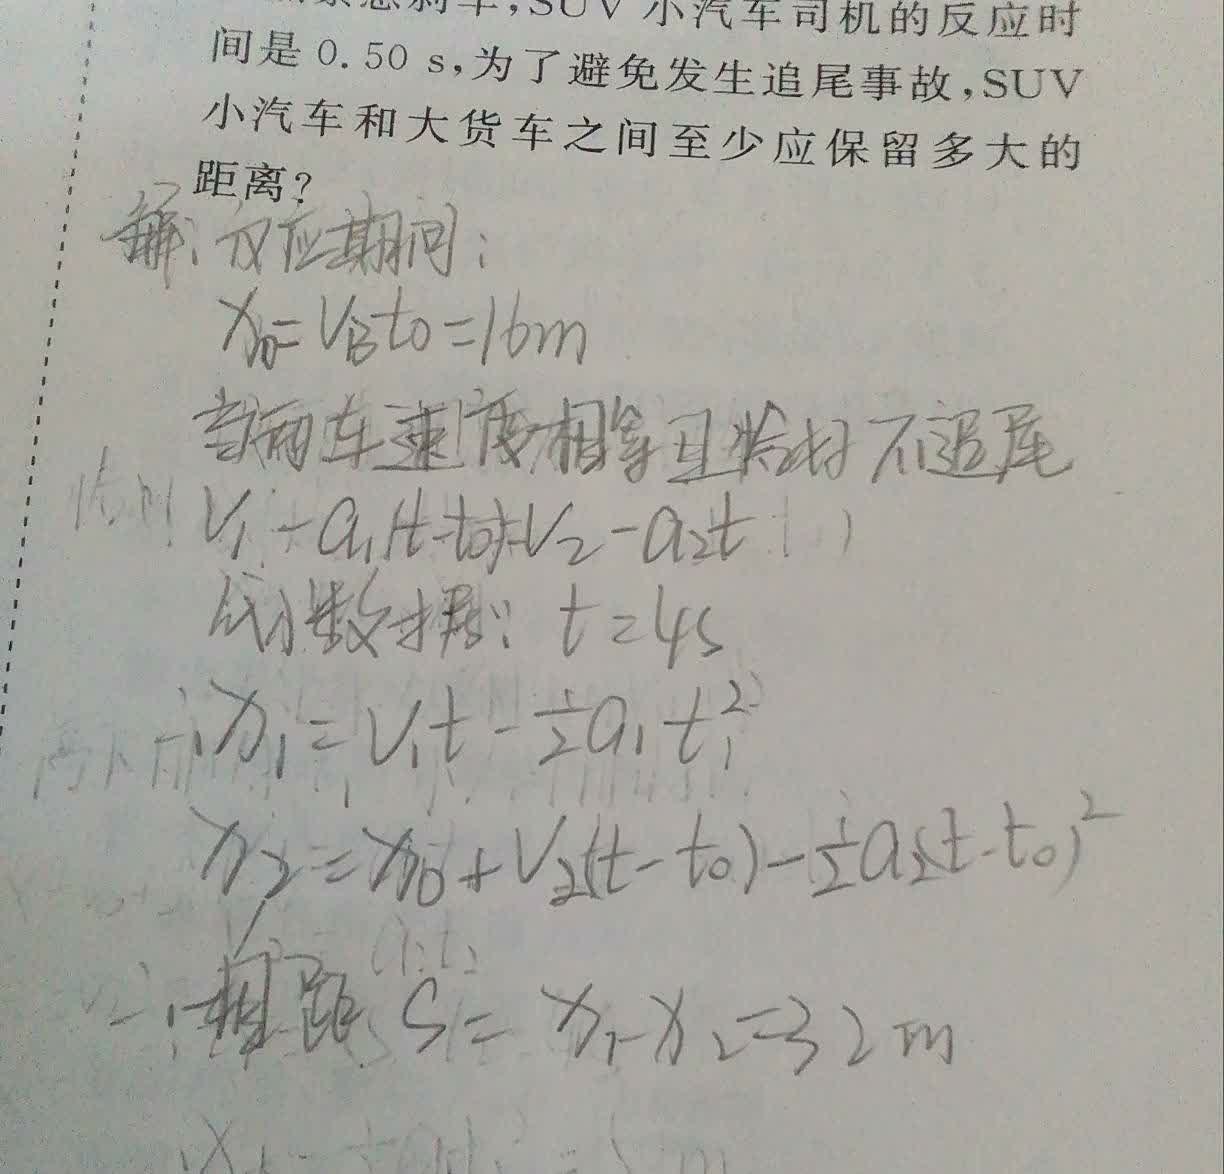 急刹车,SUV 小汽车司机的反应时
间是 0.50 s,为了避免发生追尾事故,SUV
小汽车和大货车之间至少应保留多大的
距离?
解:反应期间:
x₀=V_Bt₀=16m
当两车速度相等且恰好不追尾
V₁-a₁(t-t₀)=V₂-a₂t
代入数据: t=4s
∴x₁=V₁t-½a₁t₁²
x₂=x₀+V₂(t-t₀)-½a₂(t-t₀)²
∴相距 S=x₁-x₂=32m